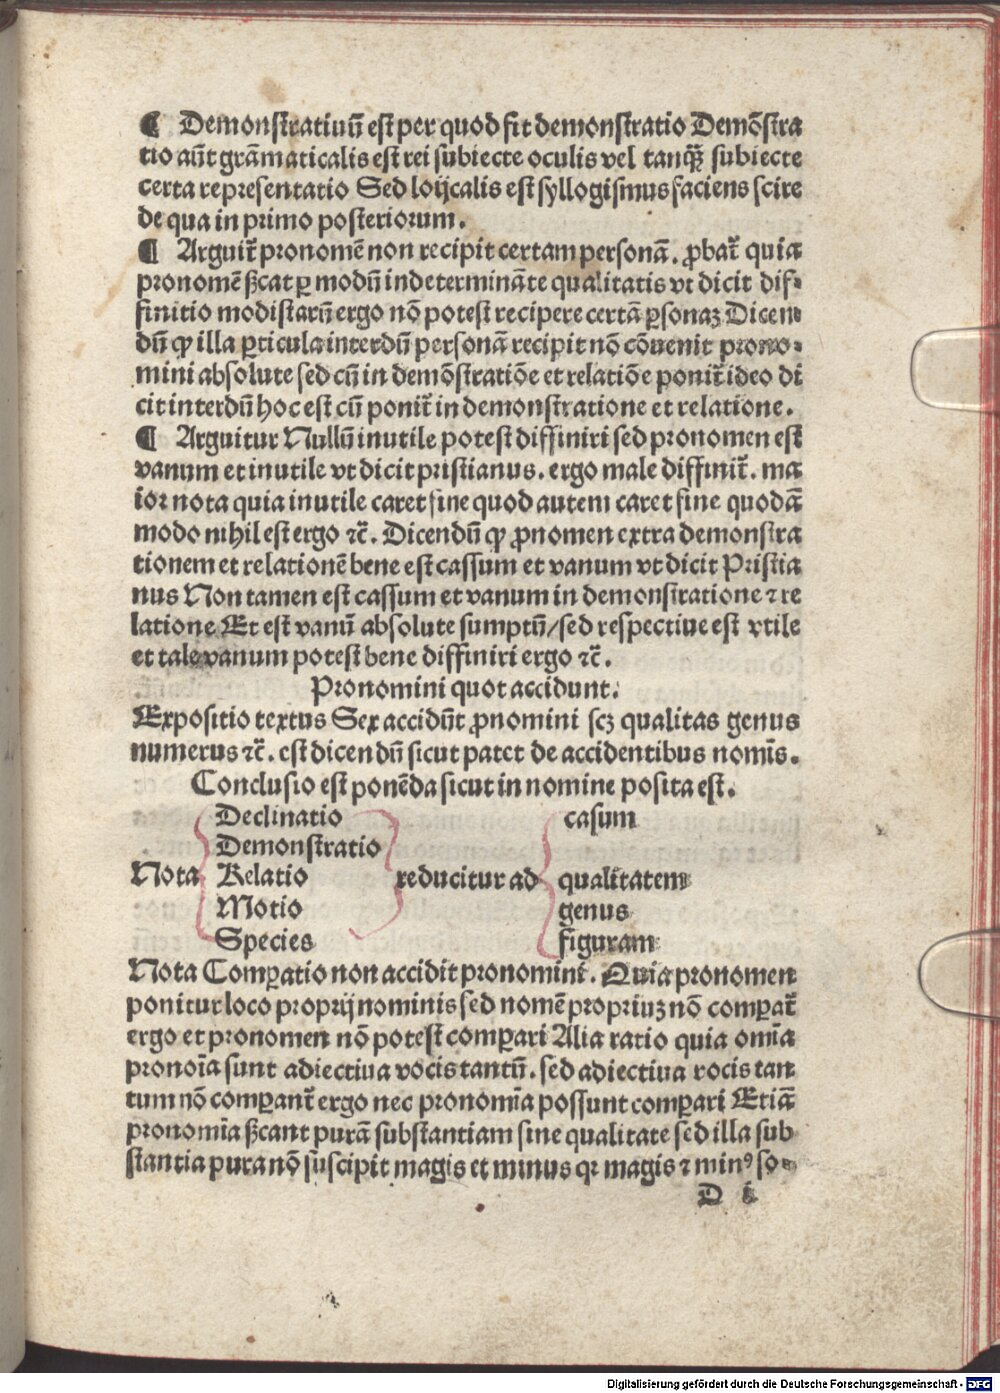 ¶ Demonstratiuū est per quod fit demonstratio Demōstra
tio aūt grāmaticalis est rei subiecte oculis vel tanqꝫ subiecte
certa representatio Sed loijcalis est syllogismus faciens scire
de qua in primo posteriorum.
¶ Arguit᷑ pronomē non recipit certam personā. ꝓbat᷑ quia
pronomē ßcat ꝑ modū indetermināte qualitatis vt dicit dif-
finitio modistarū ergo nō potest recipere certā ꝑsonaꝫ Dicen
dū ꝙ illa ꝑticula interdū personā recipit nō cōuenit prono-
mini absolute sed cū in demōstratiōe et relatiōe ponit᷑ ideo di
cit interdū hoc est cū ponit᷑ in demonstratione et relatione.
¶ Arguitur Nullū inutile potest diffiniri sed pronomen est
vanum et inutile vt dicit pristianus. ergo male diffinit᷑. ma
ior nota quia inutile caret fine quod autem caret fine quodā
modo nihil est ergo ⁊c̄. Dicendū ꝙ ꝓnomen extra demonstra
tionem et relationē bene est cassum et vanum vt dicit Pristia
nus Non tamen est cassum et vanum in demonstratione ⁊ re
latione Et est vanū absolute sumptū/sed respectiue est vtile
et tale vanum potest bene diffiniri ergo ⁊c̄.
Pronomini quot accidunt.
Expositio textus Sex accidūt ꝓnomini scꝫ qualitas genus
numerus ⁊c̄. est dicendū sicut patet de accidentibus nomīs.
Conclusio est ponēda sicut in nomine posita est.
Declinatio casum
Demonstratio
Nota Relatio reducitur ad qualitatem
Motio genus
Species figuram
Nota Comꝑatio non accidit pronomini. Quia pronomen
ponitur loco proprij nominis sed nomē propriuꝫ nō comꝑat᷑
ergo et pronomen nō potest comꝑari Alia ratio quia omīa
pronoīa sunt adiectiua vocis tantū. sed adiectiua vocis tan
tum nō comꝑant᷑ ergo nec pronomīa possunt comꝑari Etiā
pronomīa ßcant purā substantiam sine qualitate sed illa sub
stantia pura nō suscipit magis et minus qꝛ magis ⁊ minꝰ so-
D i
Digitalisierung gefördert durch die Deutsche Forschungsgemeinschaft - DFG